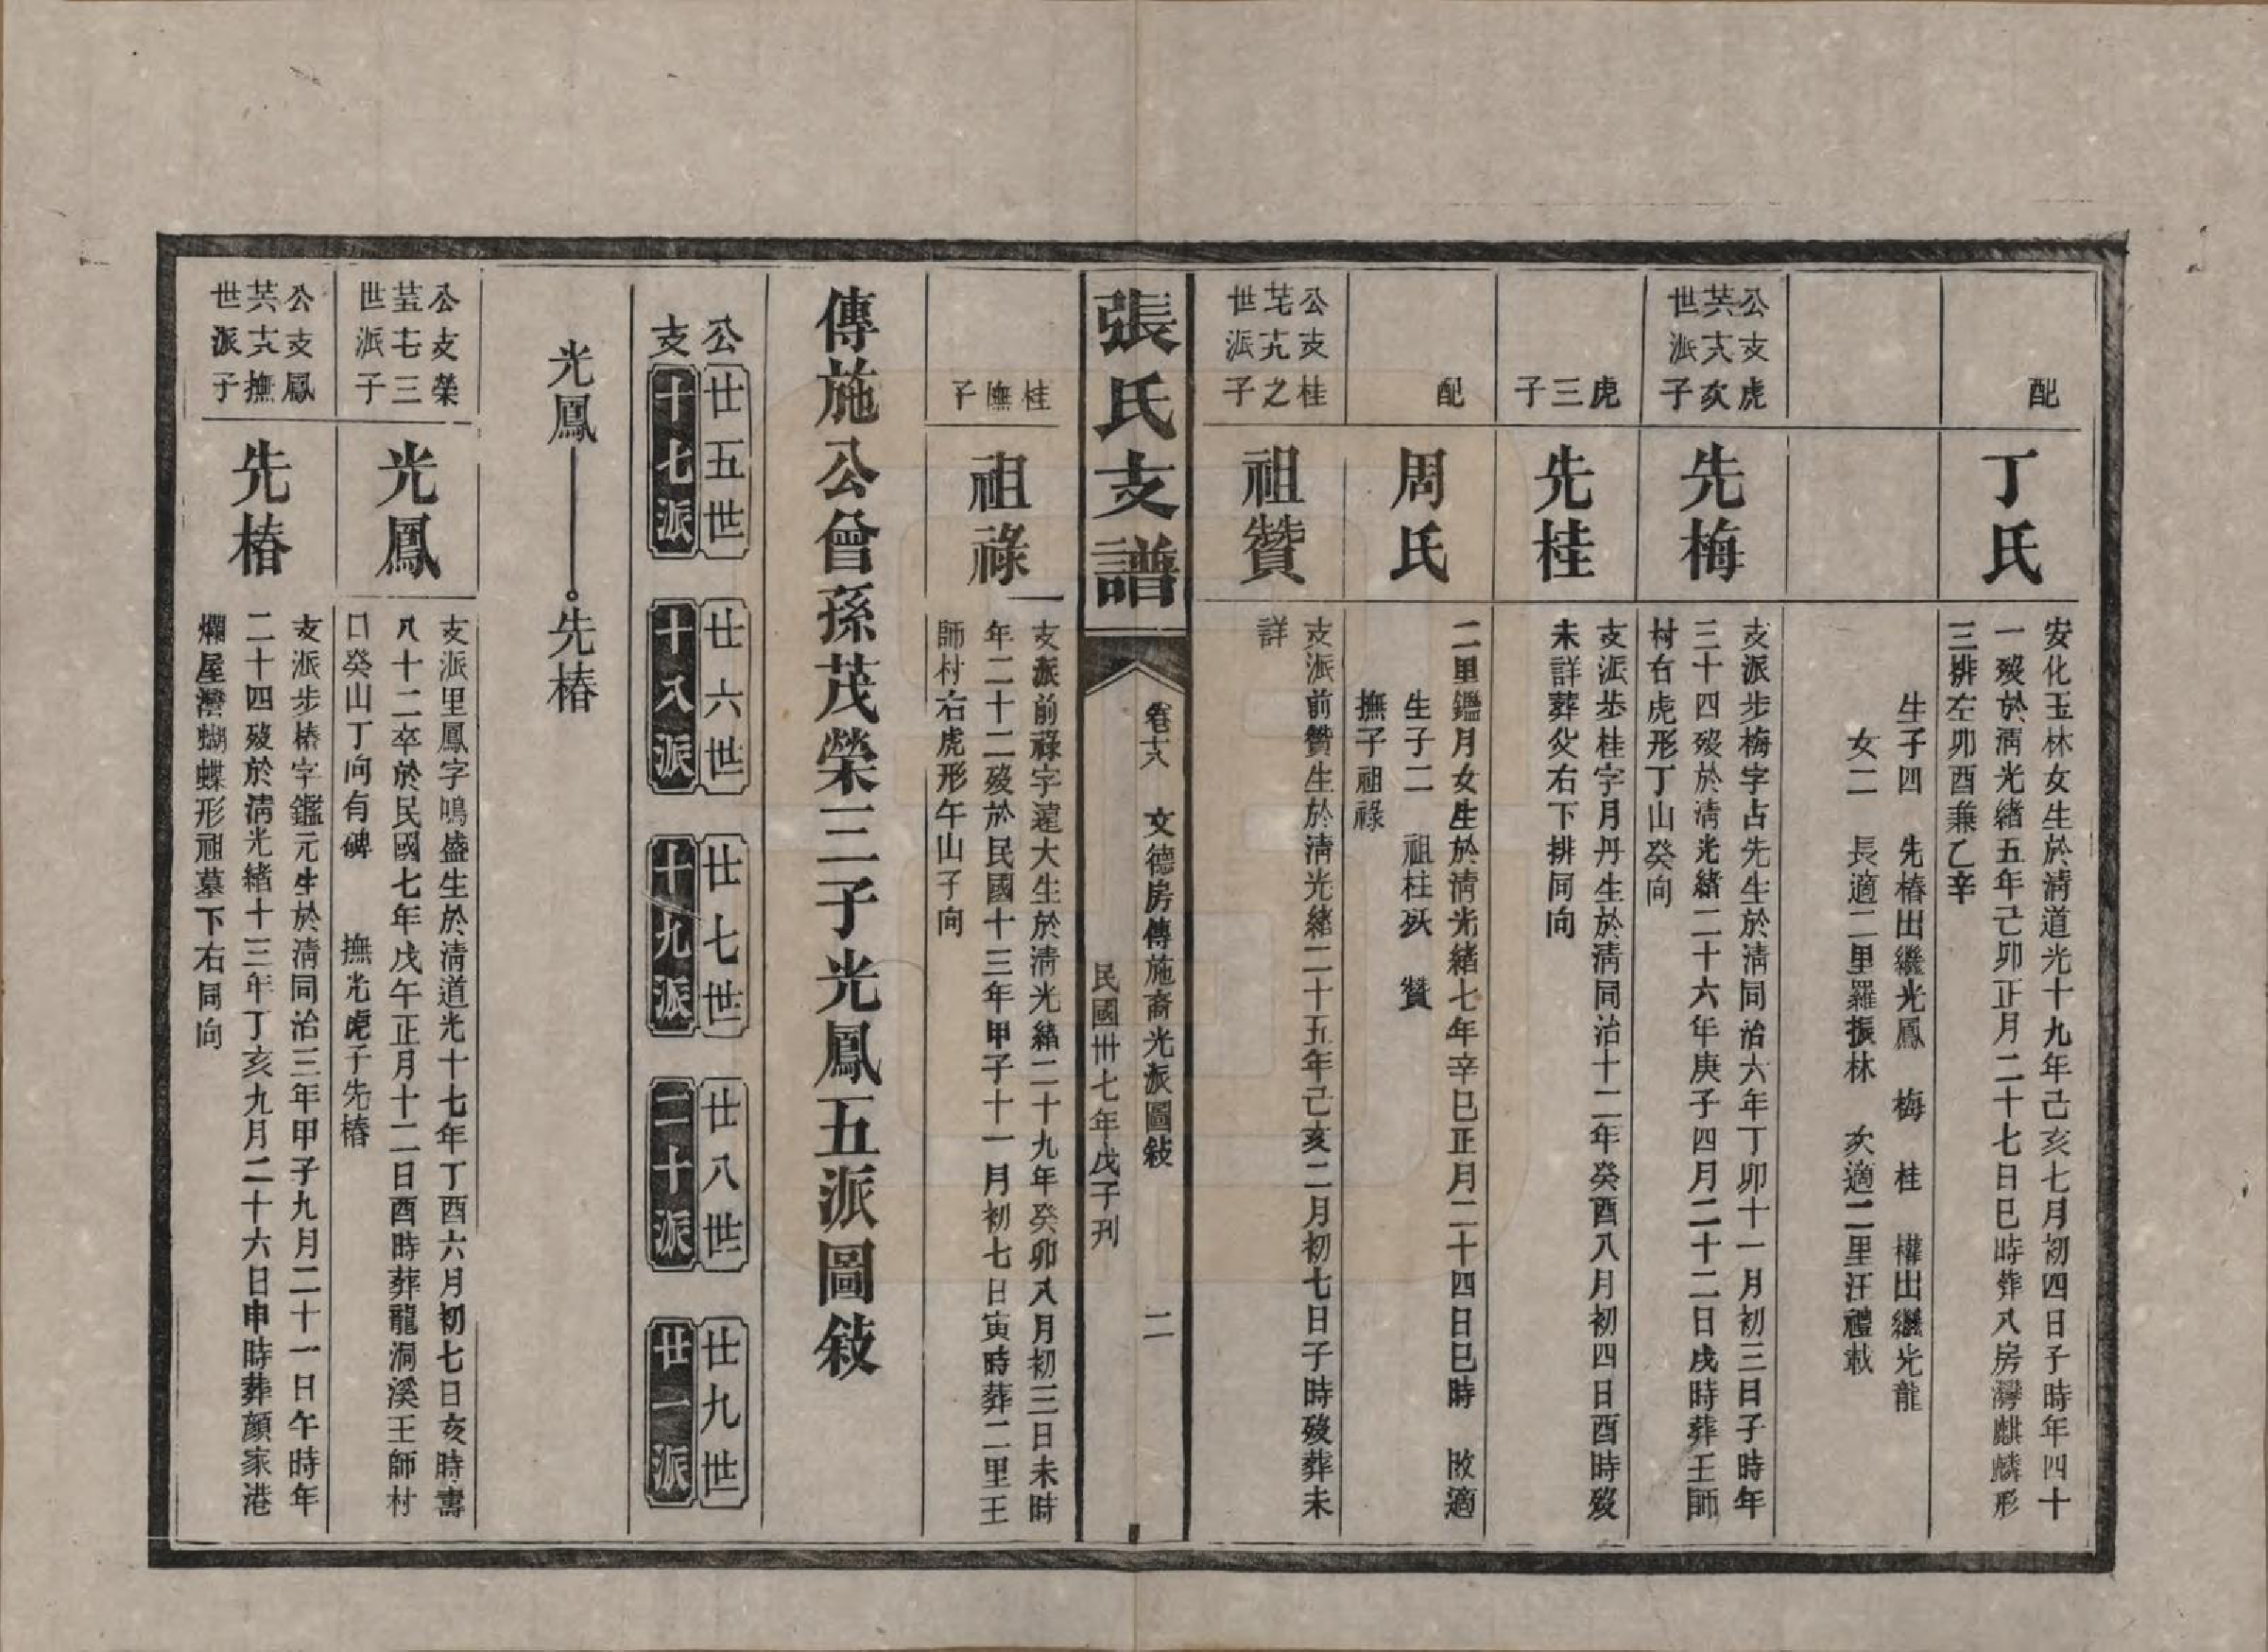 配
丁氏
安化玉林女生於清道光十九年己亥七月初四日子時年四十
一歿於清光緒五年己卯正月二十七日巳時葬八房灣麒麟形
三排左卯酉兼乙辛
生子四 先椿出繼光鳳 梅 桂 權出繼光龍
女二 長適二里羅振林 次適二里汪禮菽
公支虎
其大次
世派子
先梅
支派步梅字占先生於清同治六年丁卯十一月初三日子時年
三十四歿於清光緒二十六年庚子四月二十二日戌時葬王師
村右虎形丁山癸向
虎
三
子
先桂
支派步桂字月丹生於清同治十二年癸酉八月初四日酉時歿
未詳葬父右下排同向
配
周氏
二里鑑月女生於清光緒七年辛巳正月二十四日巳時 改適
生子二 祖柱殀 贊
撫子祖祿
公支桂
之
世派子
祖贊
支派前贊生於清光緒二十五年己亥二月初七日子時歿葬未
詳
張氏支譜
卷六 文德房傳施裔光派圖敍 二
民國卅七年戊子刊
桂
撫
子
祖祿
支派前祿字達大生於清光緒二十九年癸卯八月初三日未時
年二十二歿於民國十三年甲子十一月初七日寅時葬二里王
師村右虎形午山子向
傳施公曾孫茂榮三子光鳳五派圖敍
公 廿五世 廿六世 廿七世 廿八世 廿九世
支 十七派 十八派 十九派 二十派 廿一派
光鳳 先椿
公支榮
三
世派子
光鳳
支派里鳳字鳴盛生於清道光十七年丁酉六月初七日亥時壽
八十二卒於民國七年戊午正月十二日酉時葬龍洞溪王師村
口癸山丁向有碑 撫光虎子先椿
公支鳳
撫
世派子
先椿
支派步椿字鑑元生於清同治三年甲子九月二十一日午時年
二十四歿於清光緒十三年丁亥九月二十六日申時葬顏家港
爛屋灣蝴蝶形祖墓下右同向